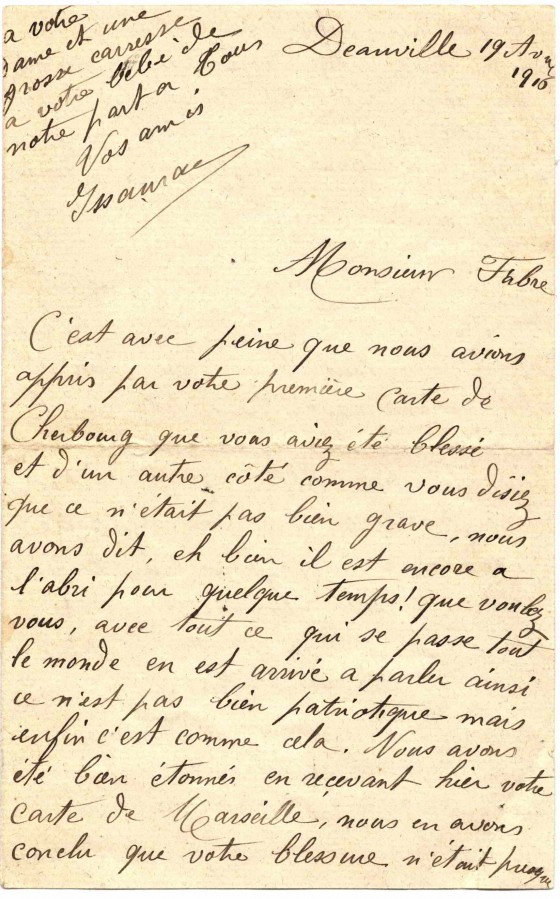 a votre
dame et une
grosse carresse
a votre bébé de
notre part a Tous
Vos amis
Issaurac
Deauville 19 Avril
1916
Monsieur Fabre
C'est avec peine que nous avions
appris par votre première carte de
Cherbourg que vous aviez été blessé
et d'un autre côté comme vous disiez
que ce n'était pas bien grave, nous
avons dit, eh bien il est encore a
l'abri pour quelque temps! que voulez
vous, avec tout ce qui se passe tout
le monde en est arrivé a parler ainsi
ce n'est pas bien patriotique mais
enfin c'est comme cela. Nous avons
été bien étonnés en recevant hier votre
carte de Marseille, nous en avons
conclu que votre blessure n'était presque